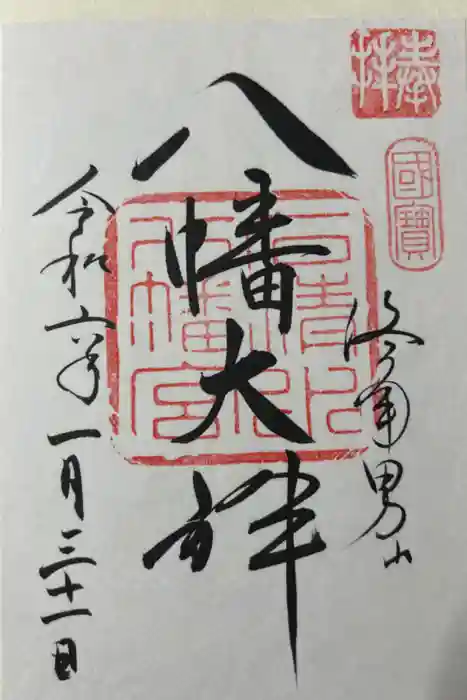 奉拝
國寶
洛南男山
八幡大神
石清水八幡宮
令和六年一月三十一日